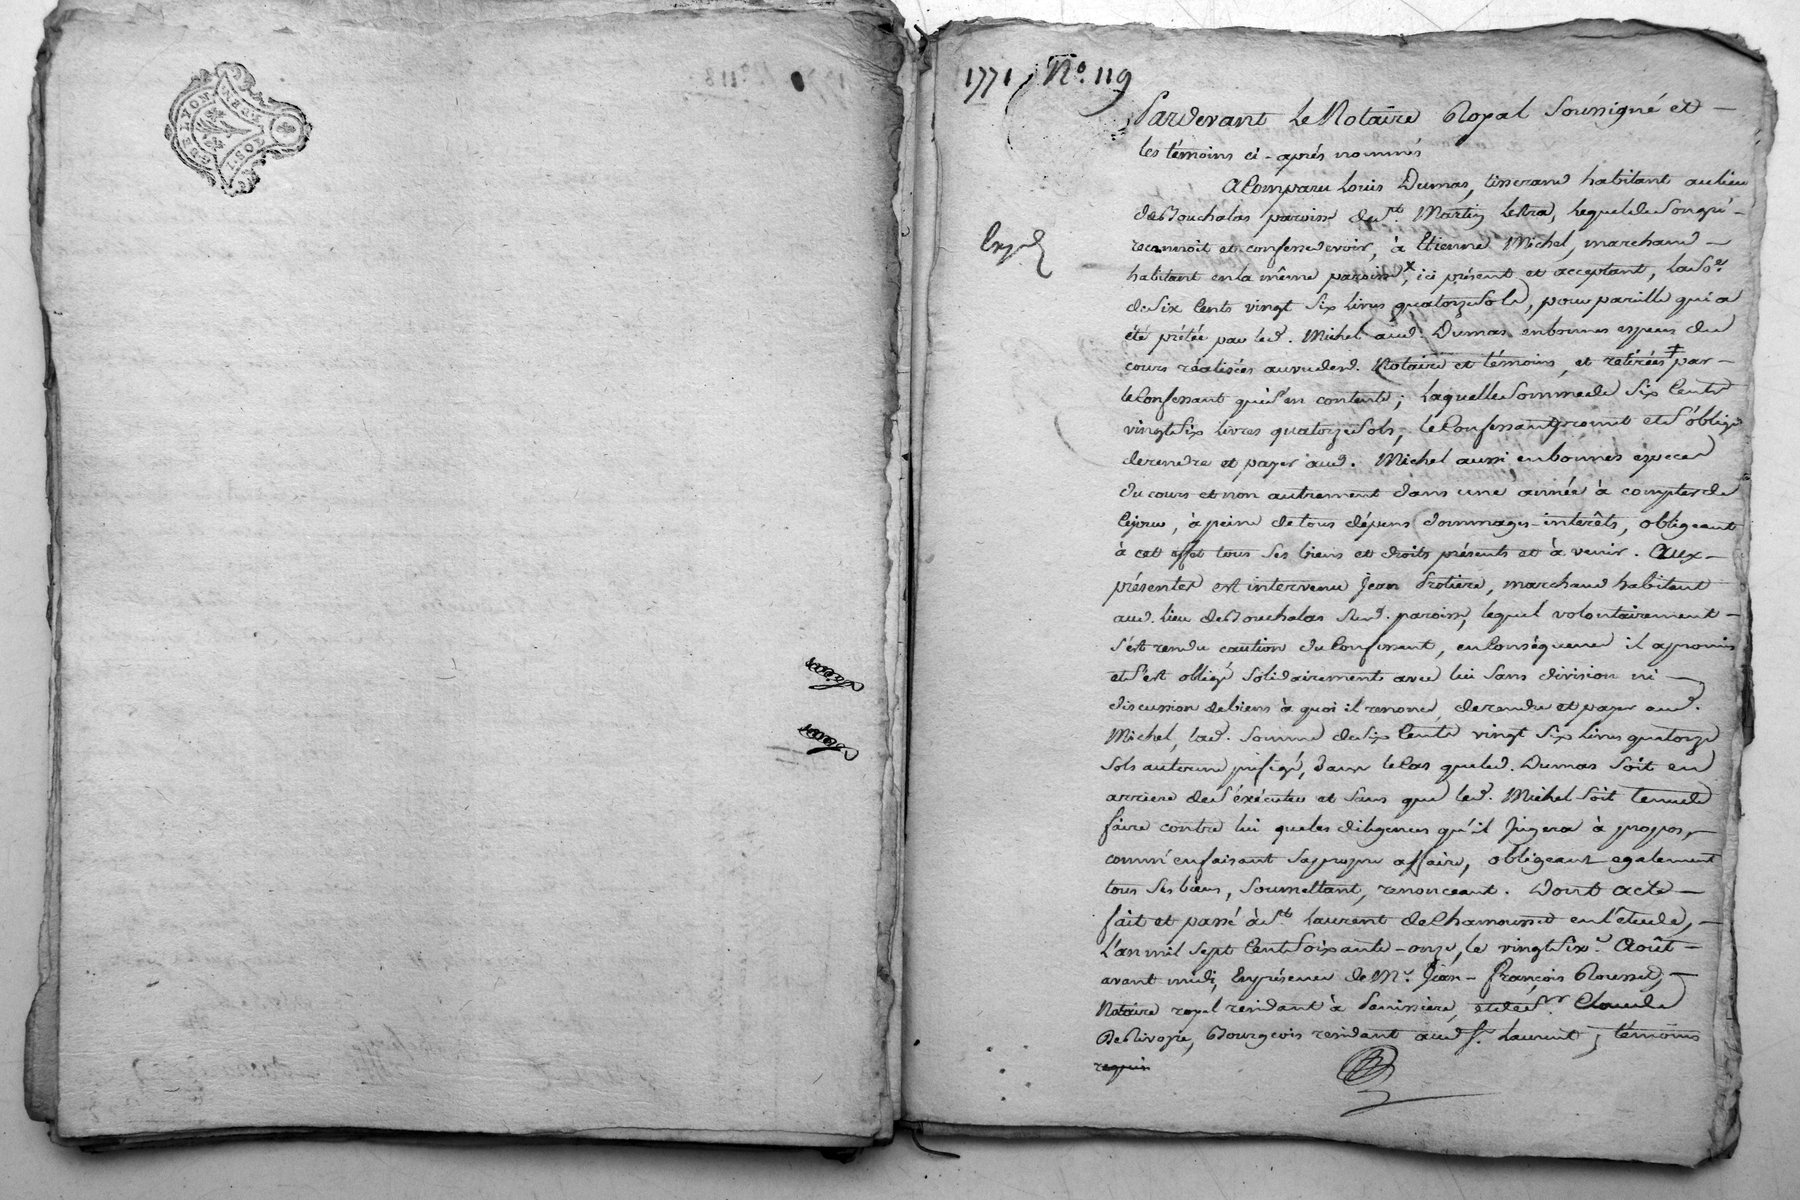 GEN DE LYON
1771 N.º 119
Pardevant Le Notaire Royal Soussigné et
les témoins ci-après nommés
A Comparu Louis Dumas, tisserand habitant au lieu
de Bouchalas paroisse de St. Martin Lestra, lequel de Son gré
reconnoit et confesse devoir, à Etienne Michel, marchand
habitant en la même paroisse, ici présent et acceptant, la So.e
de Six Cents vingt Six Livres quatorze Sols, pour pareille qui a
été prétée par led. Michel aud. Dumas en bonnes especes du
cours réalisées au vu desd. Notaire et témoins, et retirées par
le Confessant qui S'en contente; laquelle Somme de Six Cents
vingt Six Livres quatorze Sols, le Confessant promet et S'oblige
de rendre et payer aud. Michel aussi en bonnes especes
du cours et non autrement dans une année à compter de
Cejour, à peine de tous dépens dommages-intérêts, obligeant
à cet effet tous Ses biens et droits présents et à venir. Aux
présentes est intervenu Jean Protiere, marchand habitant
aud. lieu de Bouchalas Susd. paroisse, lequel volontairement
S'est rendu caution du Confessant, en Conséquence il a promis
et S'est obligé Solidairement avec lui Sans division ni
discussion de biens à quoi il renonce, de rendre et payer aud.
Michel, lad. Somme de Six Cents vingt Six Livres quatorze
Sols au terme prefigé, dans le Cas que led. Dumas Soit en
arriere de S'exécuter et Sans que led. Michel Soit tenu de
faire contre lui que les diligences qu'il Jugera à propos,
comm' en faisant Sa propre affaire, obligeant egalement
tous Ses biens, Soumettant, renonceant. Dont acte
fait et passé à St. Laurent de Chamousset en l'étude,
L'an mil Sept Cent Soixante-onze, le vingt Six.e Août
avant midi, En présence de M.e Jean-François Rousset,
Notaire royal residant à Panissiere, et de Sr. Claude
Bourgeois residant aud St. Laurent, témoins
requis